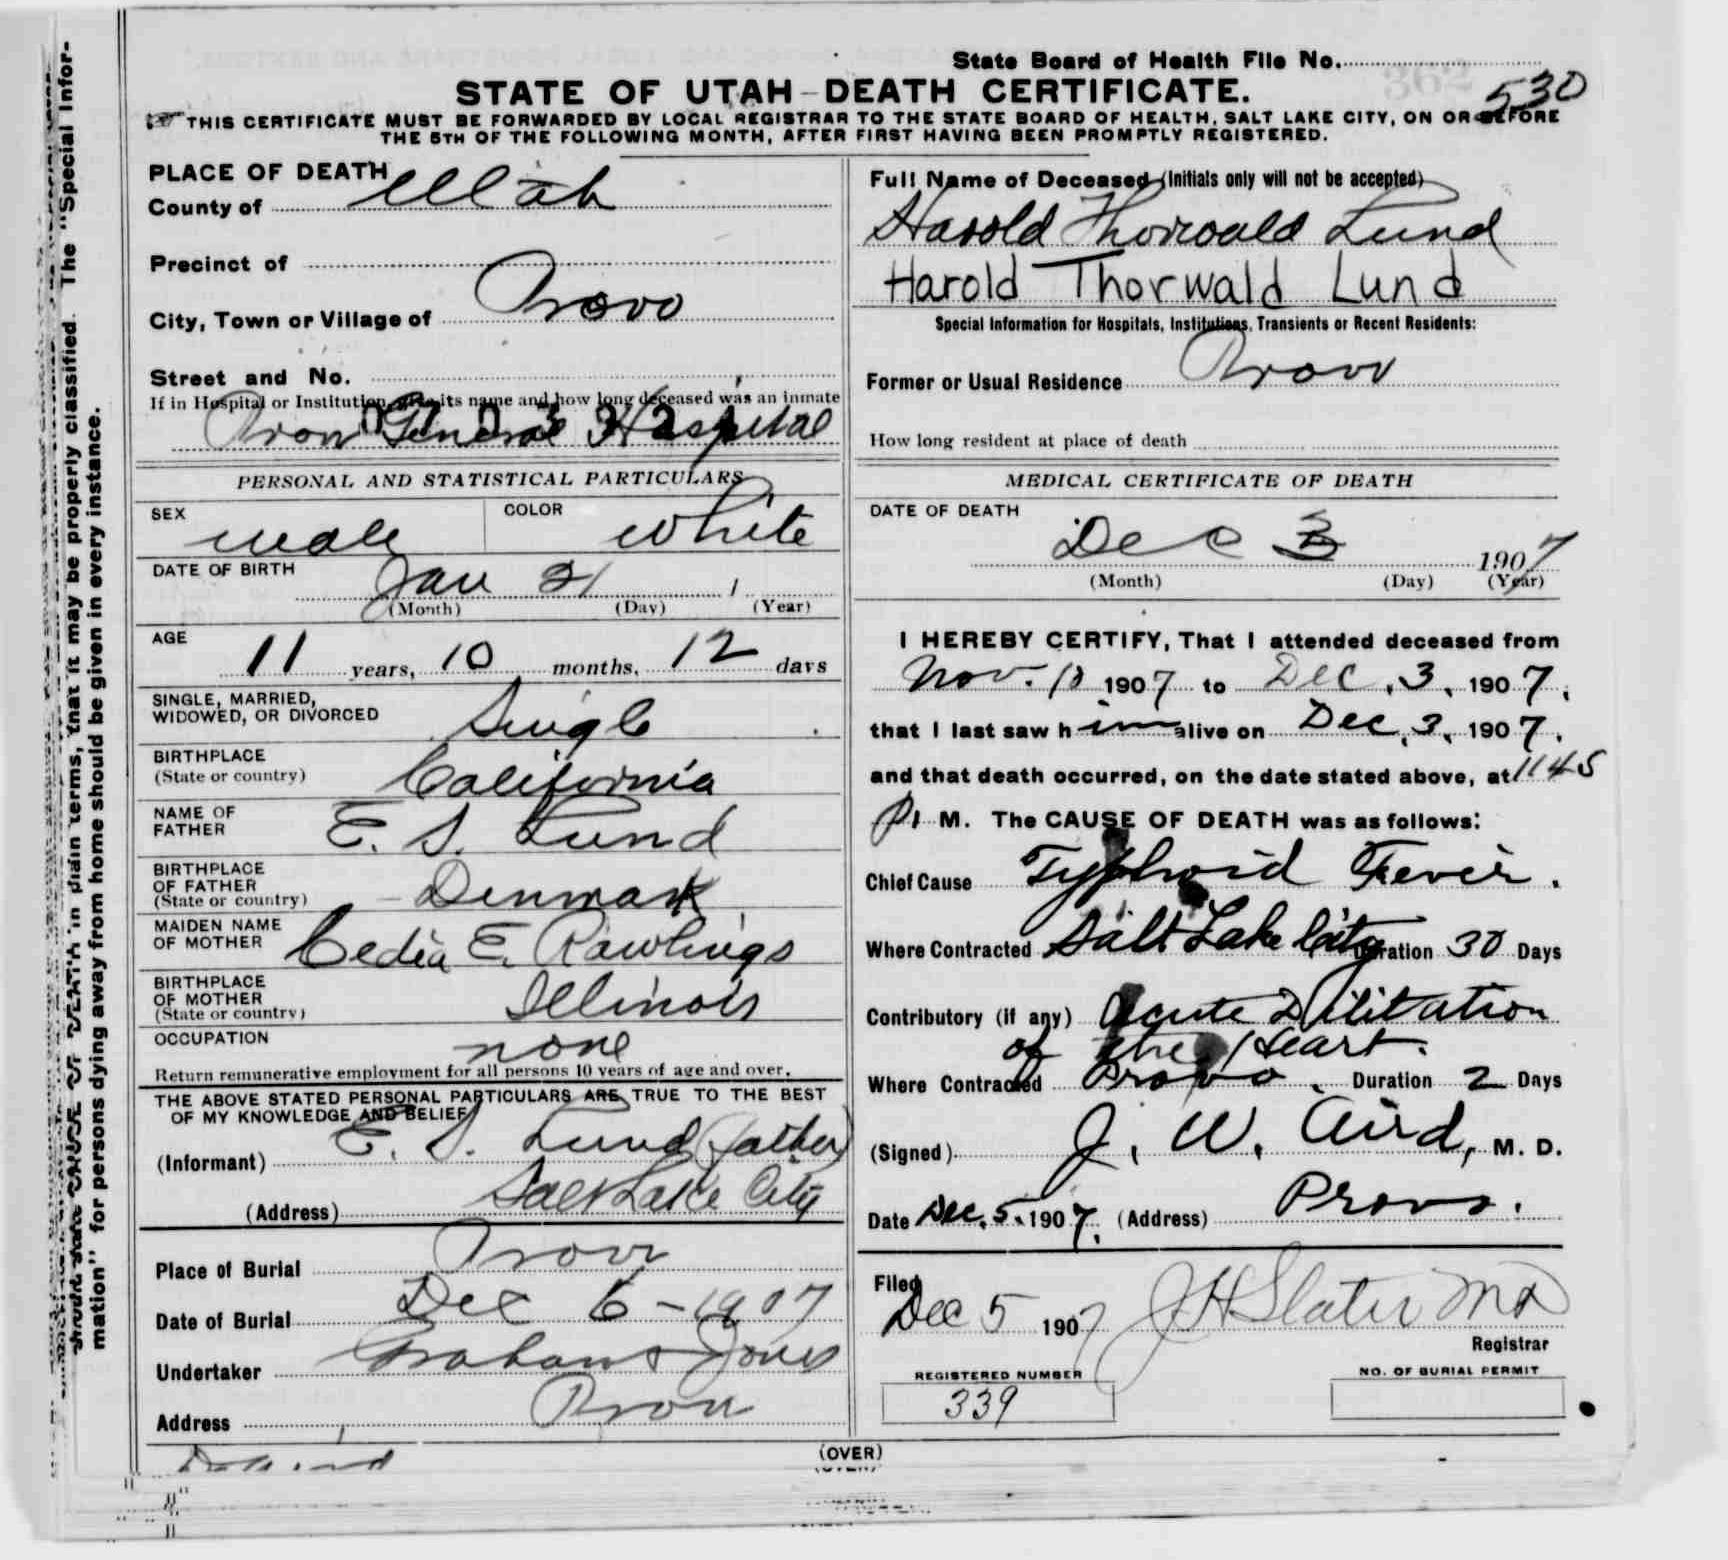 State Board of Health File No.
362
530
STATE OF UTAH-DEATH CERTIFICATE.
THIS CERTIFICATE MUST BE FORWARDED BY LOCAL REGISTRAR TO THE STATE BOARD OF HEALTH, SALT LAKE CITY, ON OR BEFORE
THE 5TH OF THE FOLLOWING MONTH, AFTER FIRST HAVING BEEN PROMPTLY REGISTERED.
PLACE OF DEATH
County of Utah
Precinct of
City, Town or Village of Provo
Street and No.
If in Hospital or Institution, give its name and how long deceased was an inmate
Provo General Hospital
PERSONAL AND STATISTICAL PARTICULARS
SEX male COLOR White
DATE OF BIRTH Jan 21 1
(Month) (Day) (Year)
AGE 11 years, 10 months, 12 days
SINGLE, MARRIED,
WIDOWED, OR DIVORCED Single
BIRTHPLACE
(State or country) California
NAME OF
FATHER E. S. Lund
BIRTHPLACE
OF FATHER
(State or country) Denmark
MAIDEN NAME
OF MOTHER Cedia E. Rawlings
BIRTHPLACE
OF MOTHER
(State or country) Illinois
OCCUPATION none
Return remunerative employment for all persons 10 years of age and over.
THE ABOVE STATED PERSONAL PARTICULARS ARE TRUE TO THE BEST
OF MY KNOWLEDGE AND BELIEF
(Informant) E. S. Lund (father)
(Address) Salt Lake City
Place of Burial Provo
Date of Burial Dec 6-1907
Undertaker Graham & Jones
Address Provo
Full Name of Deceased (Initials only will not be accepted)
Harold Thorwald Lund
Harold Thorwald Lund
Special Information for Hospitals, Institutions, Transients or Recent Residents:
Former or Usual Residence Provo
How long resident at place of death
MEDICAL CERTIFICATE OF DEATH
DATE OF DEATH
Dec 3 1907
(Month) (Day) (Year)
I HEREBY CERTIFY, That I attended deceased from
Nov. 10 1907 to Dec. 3, 1907,
that I last saw him alive on Dec, 3, 1907,
and that death occurred, on the date stated above, at 1145
P. M. The CAUSE OF DEATH was as follows:
Chief Cause Typhoid Fever.
Where Contracted Salt Lake City Duration 30 Days
Contributory (if any) Acute Dilitation
of the Heart.
Where Contracted Provo. Duration 2 Days
(Signed) J. W. Aird, M. D.
Date Dec. 5, 1907. (Address) Provo.
Filed
Dec 5 1907 J H Slater MD
Registrar
REGISTERED NUMBER
339
NO. OF BURIAL PERMIT
(OVER)
mation" for persons dying away from home should be given in every instance.
in plain terms, that it may be properly classified. The "Special Infor-